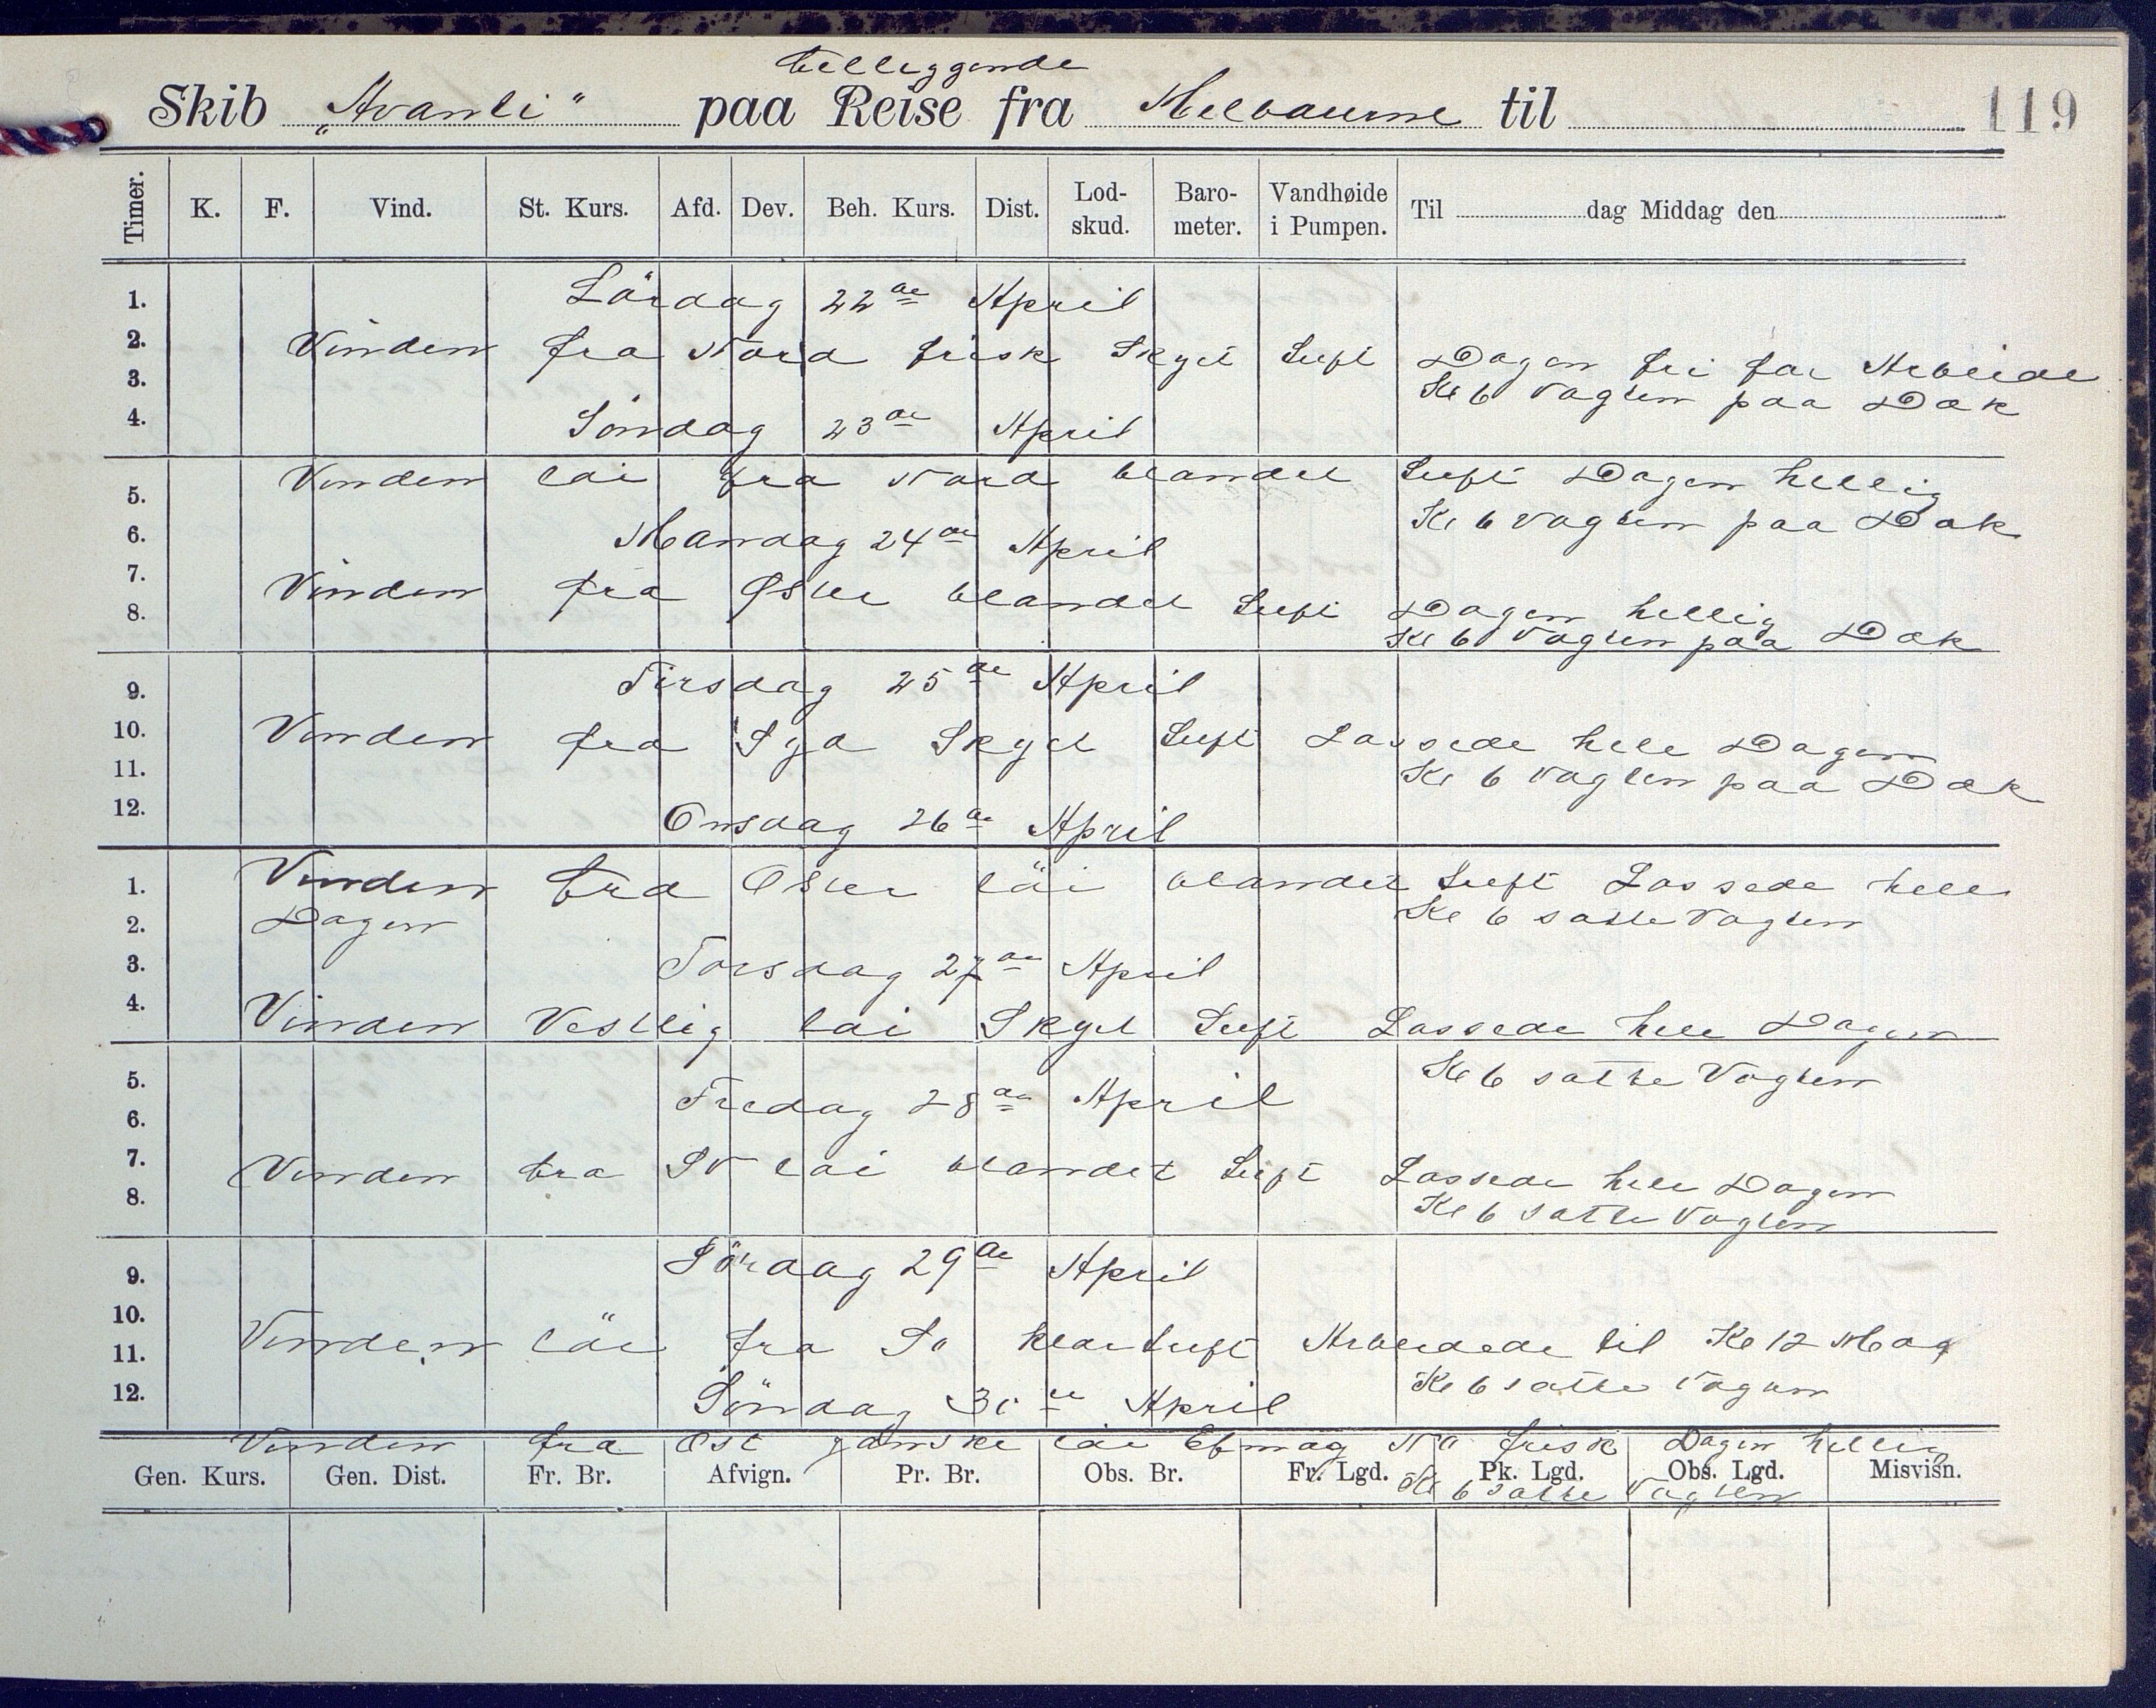 tilliggende
Skib „Avanti“ paa Reise fra Melbourne til 119
Timer. K. F. Vind. St. Kurs. Afd. Dev. Beh. Kurs. Dist. Lod-skud. Baro-meter. Vandhøide i Pumpen. Til dag Middag den
1. Lördag 22de April
2. Vinden fra Nord frisk Skyet Luft Dagen fri for Arbeide
3. Kl 6 Vagten paa Dæk
4. Söndag 23de April
Vinden löi fra Nord blandet Luft Dagen hellig
5. Kl 6 Vagten paa Dæk
6. Mandag 24de April
7. Vinden fra Øster blandet Luft Dagen hellig
8. Kl 6 Vagten paa Dæk
9. Tirsdag 25de April
10. Vinden fra Syd Skyet Luft Lossede hele Dagen
11. Kl 6 Vagten paa Dæk
12. Onsdag 26de April
1. Vinden fra Oster löi blandet Luft Lossede hele
2. Dagen Kl 6 satte Vagten
3. Torsdag 27de April
4. Vinden Vestlig löi Skyet Luft Lossede hele Dagen
5. Kl 6 satte Vagten
6. Fredag 28de April
7. Vinden fra SV löi blandet Luft Lossede hele Dagen
8. Kl 6 satte Vagten
9. Lördag 29de April
10.
11. Vinden löi fra So klar Luft Arbeidede til Kl 12 Mdag
12. Söndag 30te April Kl 6 satte Vagten
Vinden fra Ost ganske löi Efmdag No frisk Dagen hellig
Gen. Kurs. Gen. Dist. Fr. Br. Afvign. Pr. Br. Obs. Br. Fr. Lgd. Pk. Lgd. Obs. Lgd. Misvisn.
Kl 6 satte Vagten